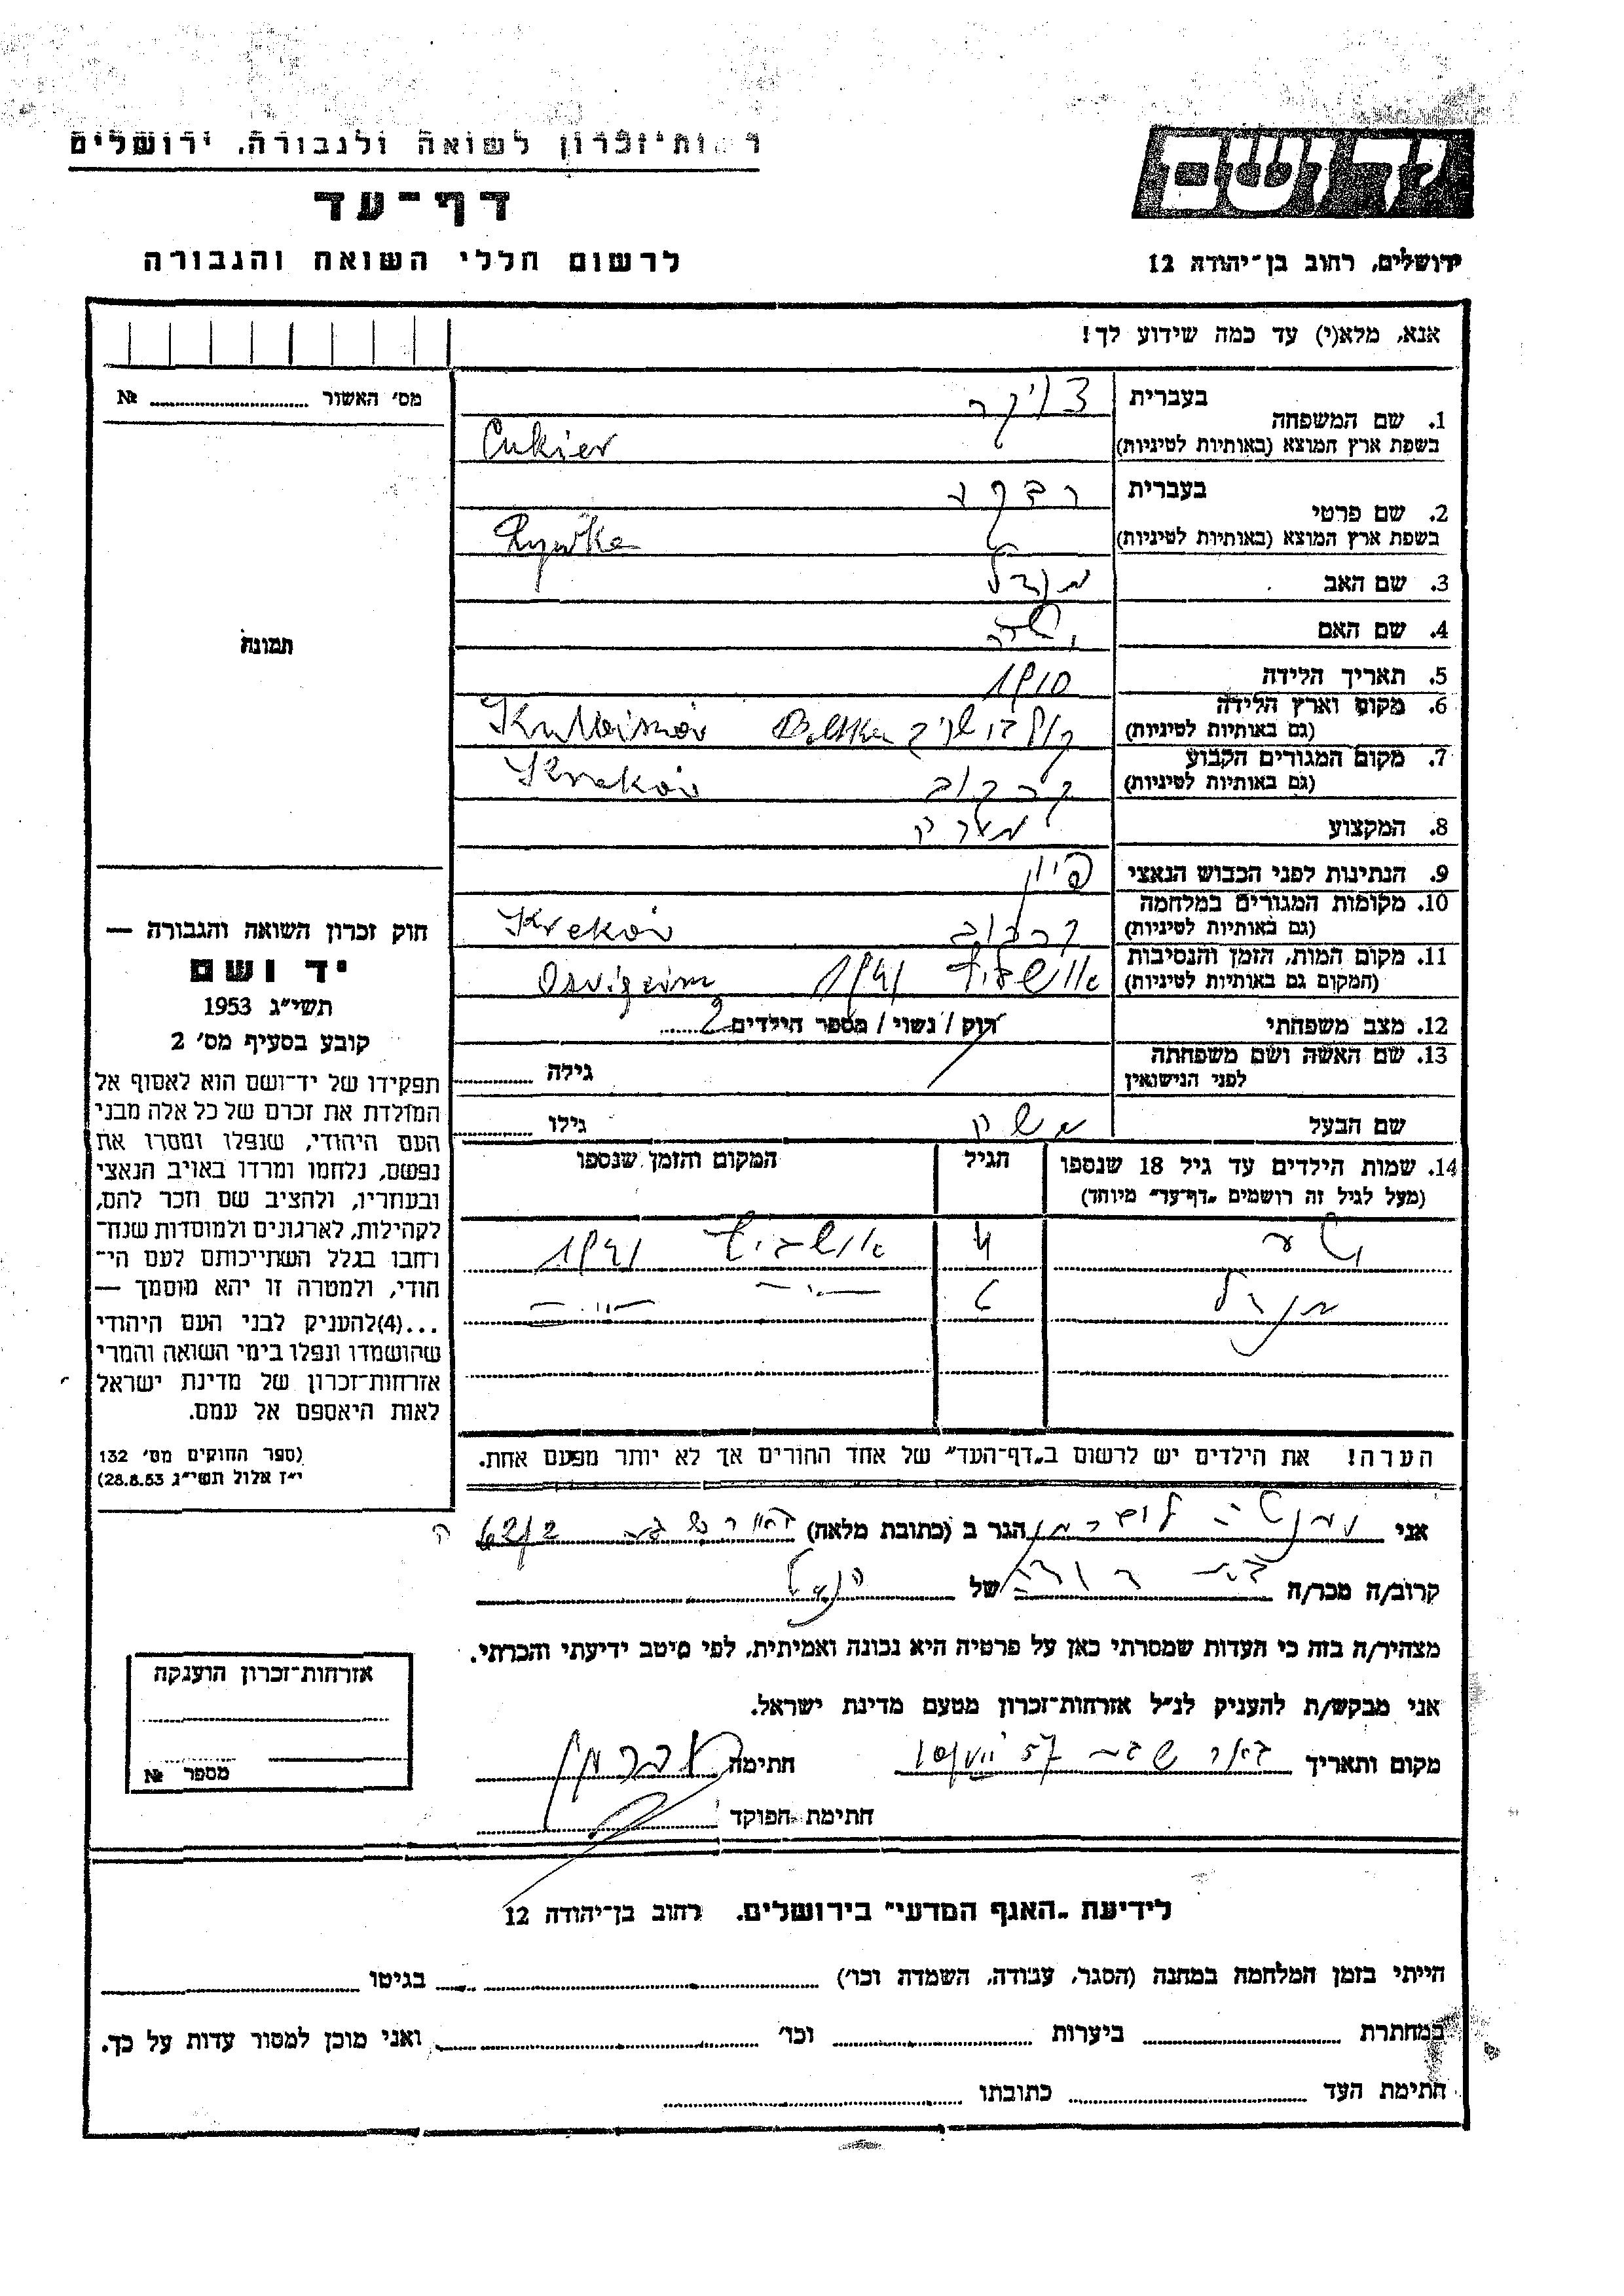 רשות־זכרון לשואה ולגבורה, ירושלים
דף־עד
לרשום חללי השואה והגבורה
יד ושם
ירושלים, רחוב בן־יהודה 12
אנא, מלא(י) עד כמה שידוע לך!
מס׳ האשור № 
1. שם המשפחה
בעברית צוקר
בשפת ארץ המוצא (באותיות לטיניות) Cukier
2. שם פרטי
בעברית רבקה
בשפת ארץ המוצא (באותיות לטיניות) Rywka
3. שם האב מנדל
4. שם האם
5. תאריך הלידה 1910
6. מקום וארץ הלידה
(גם באותיות לטיניות)
7. מקום המגורים הקבוע קרקוב Krakóv
(גם באותיות לטיניות)
8. המקצוע
9. הנתינות לפני הכבוש הנאצי פולין
10. מקומות המגורים במלחמה קרקוב Krakóv
(גם באותיות לטיניות)
11. מקום המות, הזמן והנסיבות אושביץ 1941
(המקום גם באותיות לטיניות)
12. מצב משפחתי רוק / נשוי / מספר הילדים 2
13. שם האשה ושם משפחתה גילה
לפני הנישואין
שם הבעל גילו
14. שמות הילדים עד גיל 18 שנספו הגיל המקום והזמן שנספו
(מעל לגיל זה רושמים „דף־עד” מיוחד)
4 אושביץ 1941
מנדל 6 —״— —״—
הערה! את הילדים יש לרשום ב„דף־העד” של אחד ההורים אך לא יותר מפעם אחת.
תמונה
חוק זכרון השואה והגבורה —
יד ושם
תשי״ג 1953
קובע בסעיף מס׳ 2
תפקידו של יד־ושם הוא לאסוף אל
המולדת את זכרם של כל אלה מבני
העם היהודי, שנפלו ומסרו את
נפשם, נלחמו ומרדו באויב הנאצי
ובעוזריו, ולהציב שם וזכר להם,
לקהילות, לארגונים ולמוסדות שנח־
רחבו בגלל השתייכותם לעם הי־
הודי, ולמטרה זו יהא מוסמך —
...(4)להעניק לבני העם היהודי
שהושמדו ונפלו בימי השואה והמרי
אזרחות־זכרון של מדינת ישראל
לאות היאספם אל עמם.
(ספר החוקים מס׳ 132
י״ז אלול תשי״ג 28.8.53)
אני הגר ב (כתובת מלאה) באר שבע 62/2
קרוב/ה מכר/ה בת דודה של הנ״ל
מצהיר/ה בזה כי העדות שמסרתי כאן על פרטיה היא נכונה ואמיתית, לפי מיטב ידיעתי והכרתי.
אני מבקש/ת להעניק לנ״ל אזרחות־זכרון מטעם מדינת ישראל.
מקום ותאריך באר שבע חתימה
חתימת הפוקד
אזרחות־זכרון הוענקה
מספר №
לידיעת „האגף המדעי” בירושלים, רחוב בן־יהודה 12
הייתי בזמן המלחמה במחנה (הסגר, עבודה, השמדה וכו׳) בגיטו
במחתרת ביערות וכו׳ ואני מוכן למסור עדות על כך.
חתימת העד כתובתו